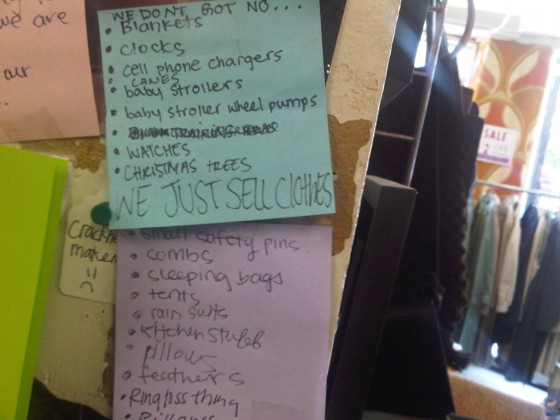 we are
our
WE DONT GOT NO...
• Blankets
• clocks
• cell phone chargers
• CANES
• baby strollers
• baby stroller wheel pumps
• WATCHES
• CHRISTMAS TREES
WE JUST SELL CLOTHES
• small safety pins
• combs
• sleeping bags
• tents
• rain suits
• kitchen stuff
• pillow
• feathers
• Ring toss thing
maker
SALE